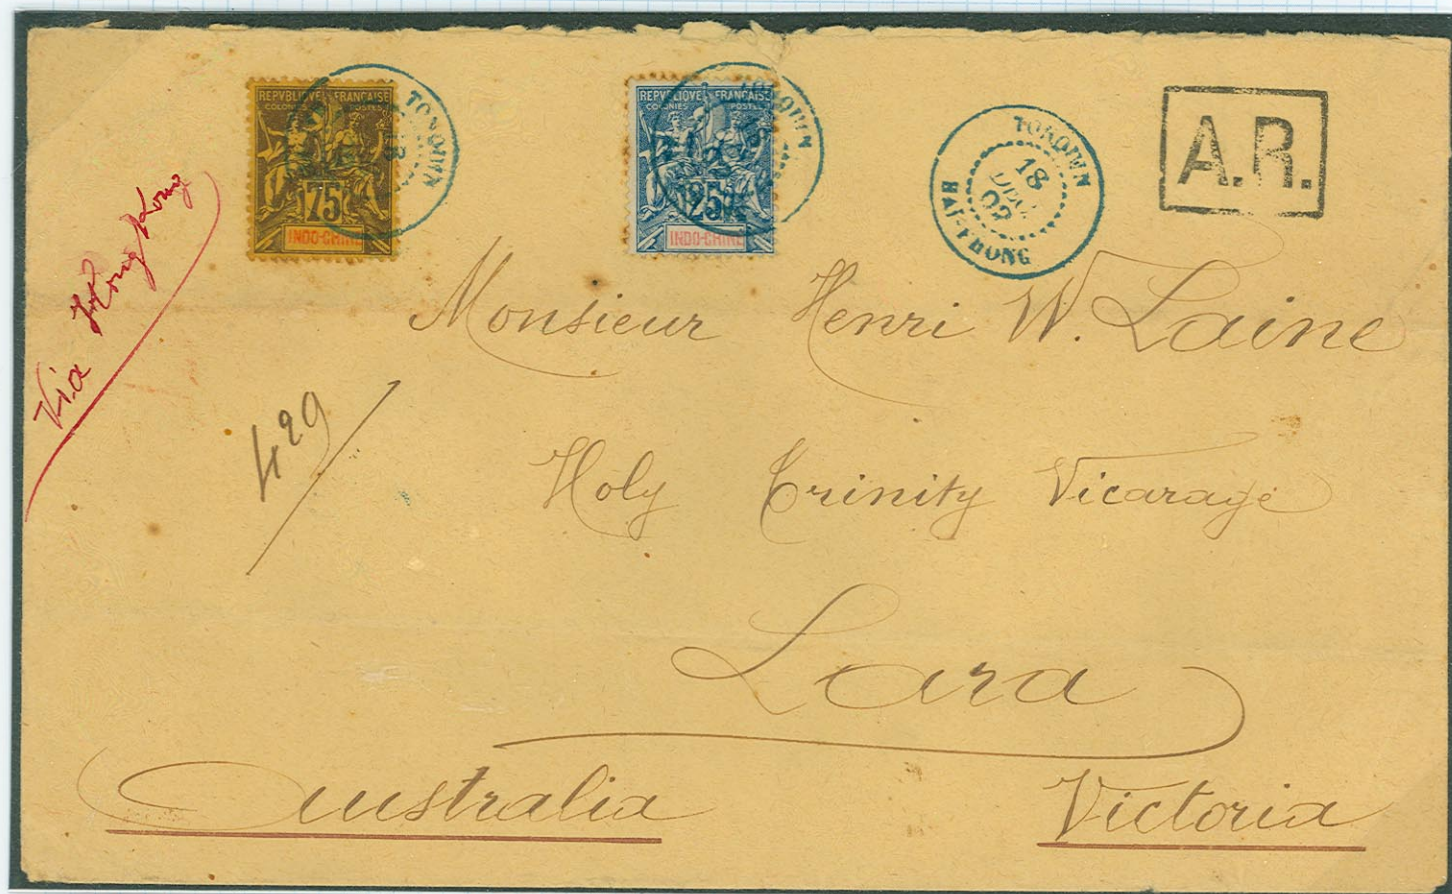 REPVBLIQVE FRANÇAISE
COLONIES POSTES
75
INDO-CHINE
TONQUIN
REPVBLIQVE FRANÇAISE
COLONIES POSTES
25
INDO-CHINE
TONQUIN
TONQUIN
18
DEC
02
HAI-PHONG
A.R.
Via Hong Kong
Monsieur Henri W. Laine
429
Holy Trinity Vicarage
Lara
Australia Victoria